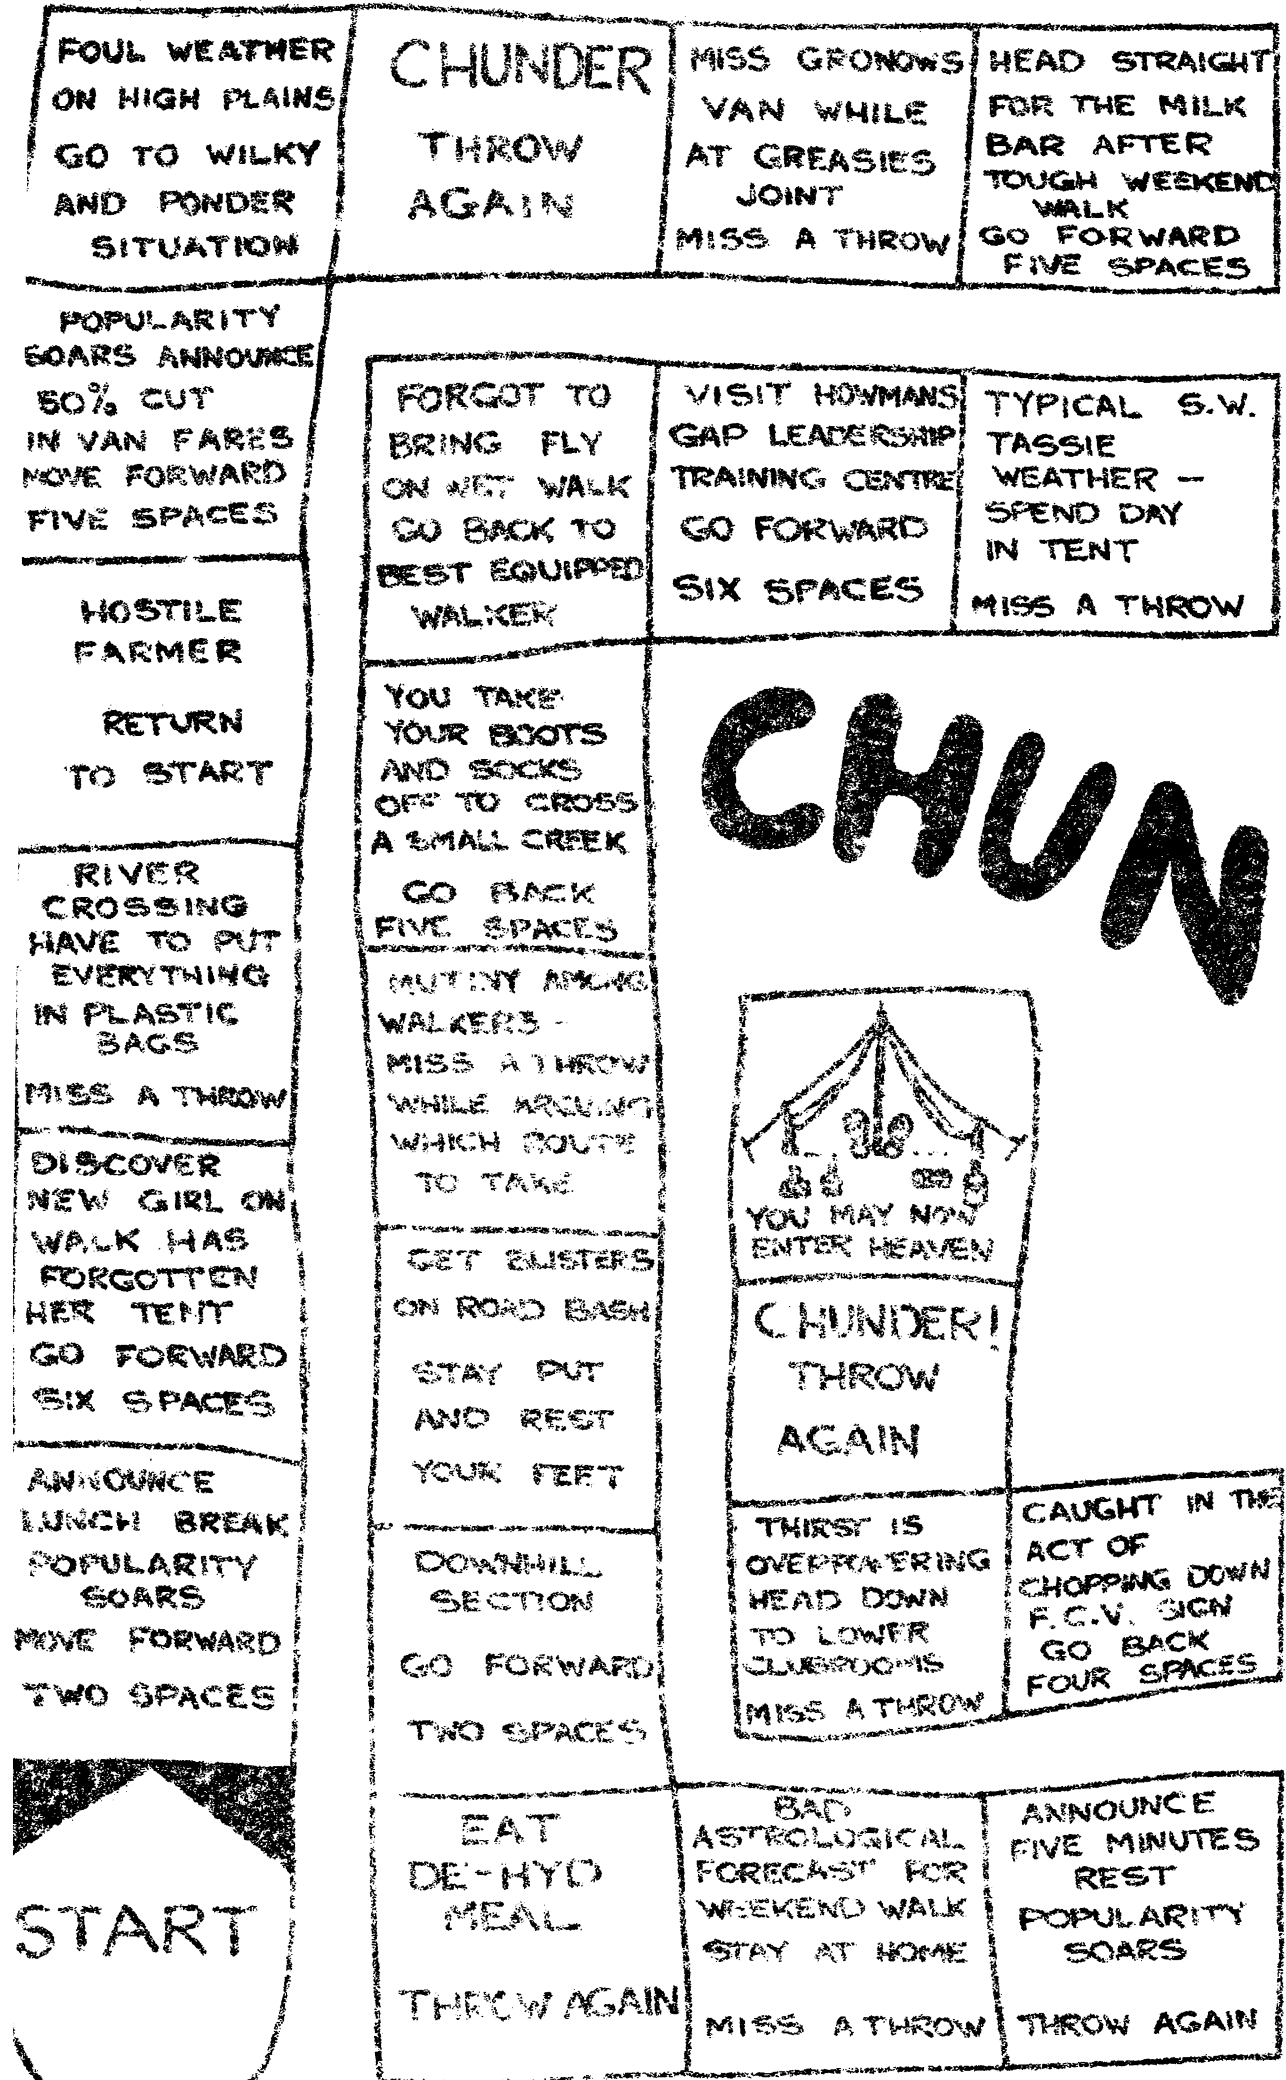 FOUL WEATHER
ON HIGH PLAINS
GO TO WILKY
AND PONDER
SITUATION
CHUNDER
THROW
AGAIN
MISS GRONOWS
VAN WHILE
AT GREASIES
JOINT
MISS A THROW
HEAD STRAIGHT
FOR THE MILK
BAR AFTER
TOUGH WEEKEND
WALK
GO FORWARD
FIVE SPACES
POPULARITY
SOARS ANNOUNCE
50% CUT
IN VAN FARES
MOVE FORWARD
FIVE SPACES
HOSTILE
FARMER
RETURN
TO START
RIVER
CROSSING
HAVE TO PUT
EVERYTHING
IN PLASTIC
BAGS
MISS A THROW
DISCOVER
NEW GIRL ON
WALK HAS
FORGOTTEN
HER TENT
GO FORWARD
SIX SPACES
ANNOUNCE
LUNCH BREAK
POPULARITY
SOARS
MOVE FORWARD
TWO SPACES
START
FORGOT TO
BRING FLY
ON WET WALK
GO BACK TO
BEST EQUIPPED
WALKER
VISIT HOWMANS
GAP LEADERSHIP
TRAINING CENTRE
GO FORWARD
SIX SPACES
TYPICAL S.W.
TASSIE
WEATHER –
SPEND DAY
IN TENT
MISS A THROW
YOU TAKE
YOUR BOOTS
AND SOCKS
OFF TO CROSS
A SMALL CREEK
GO BACK
FIVE SPACES
MUTINY AMONG
WALKERS -
MISS A THROW
WHILE ARGUING
WHICH ROUTE
TO TAKE
GET BLISTERS
ON ROAD BASH
STAY PUT
AND REST
YOUR FEET
DOWNHILL
SECTION
GO FORWARD
TWO SPACES
EAT
DE-HYD
MEAL
THROW AGAIN
BAD
ASTROLOGICAL
FORECAST FOR
WEEKEND WALK
STAY AT HOME
MISS A THROW
ANNOUNCE
FIVE MINUTES
REST
POPULARITY
SOARS
THROW AGAIN
CHUN
YOU MAY NOW
ENTER HEAVEN
CHUNDER!
THROW
AGAIN
THIRST IS
OVERPOWERING
HEAD DOWN
TO LOWER
CLUBROOMS
MISS A THROW
CAUGHT IN THE
ACT OF
CHOPPING DOWN
F.C.V. SIGN
GO BACK
FOUR SPACES